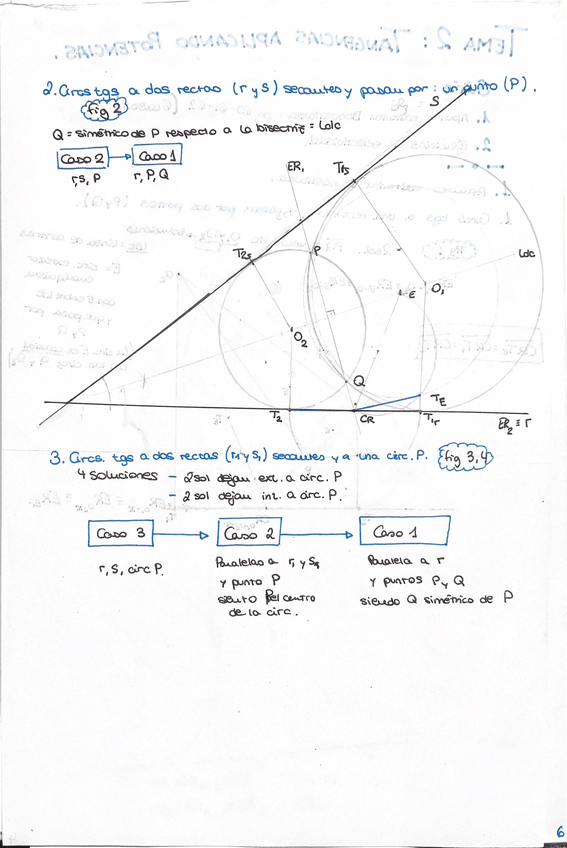 2. Circs tgs a dos rectas (r y s) secantes y pasan por: un punto (P).
fig 2
Q = simétrico de P respecto a la bisectriz = Ldc
Caso 2 → Caso 1
r, s, P
r, P, Q
S
ER1
T1s
T2s
P
Ldc
E
O1
O2
Q
TE
T2
CR
T1r
ER2 ≡ r
3. Circs. tgs a dos rectas (r y s) secantes y a una circ. P. fig 3,4
4 soluciones – 2 sol dejan ext. a circ. P
– 2 sol dejan int. a circ. P.
Caso 3 → Caso 2 → Caso 1
r, s, circ P.
Paralelas a r, y s,
y punto P
siento P el centro
de la circ.
Paralela a r
y puntos P y Q
siendo Q simétrico de P
6